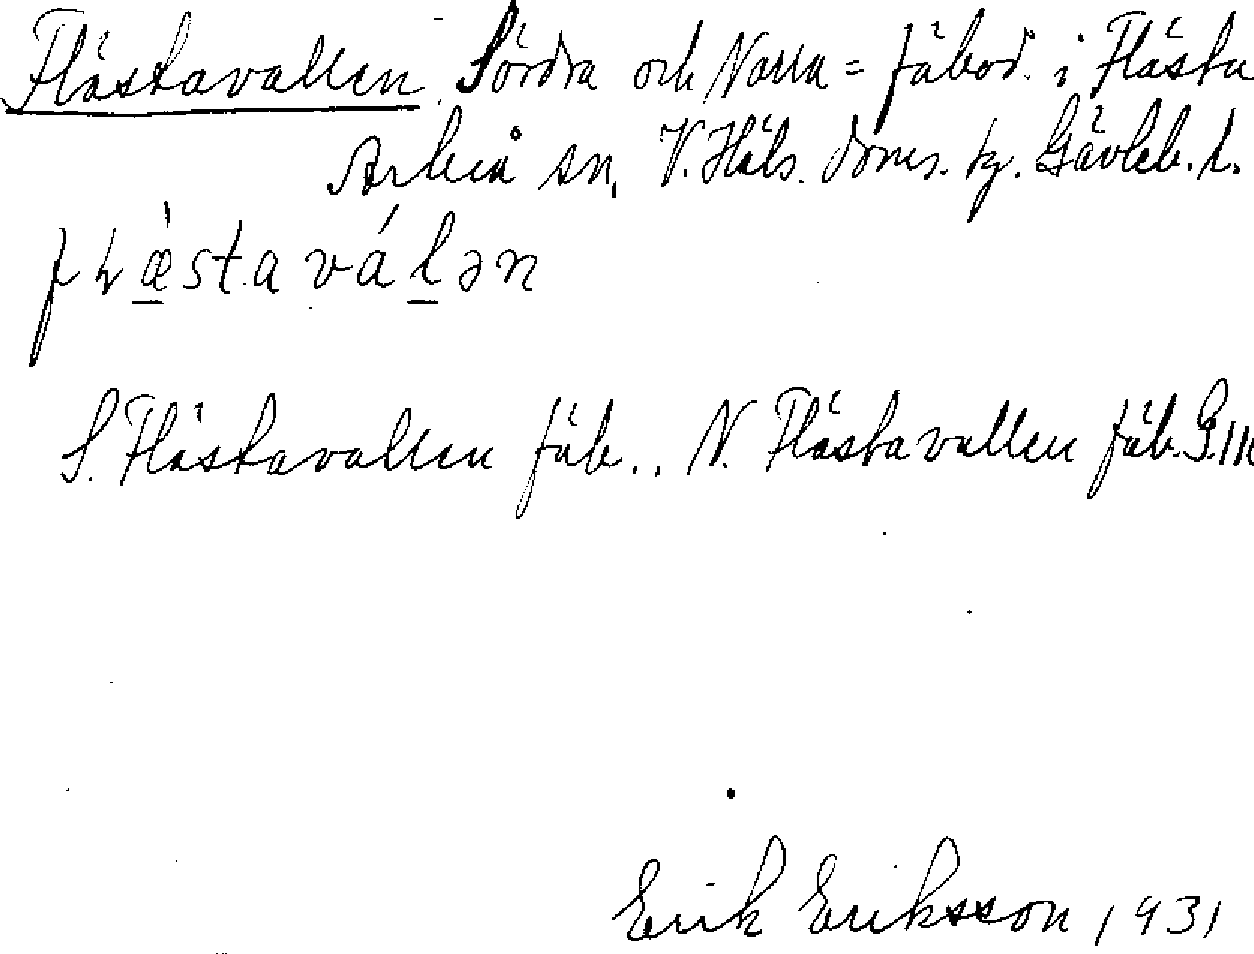 Flästavallen Södra och Norra = fäbod. i Flästa
Arbrå sn, V. Häls. doms. hg. Gävleb. l.
S. Flästavallen fäb., N. Flästavallen fäb. G.
Erik Eriksson 1931